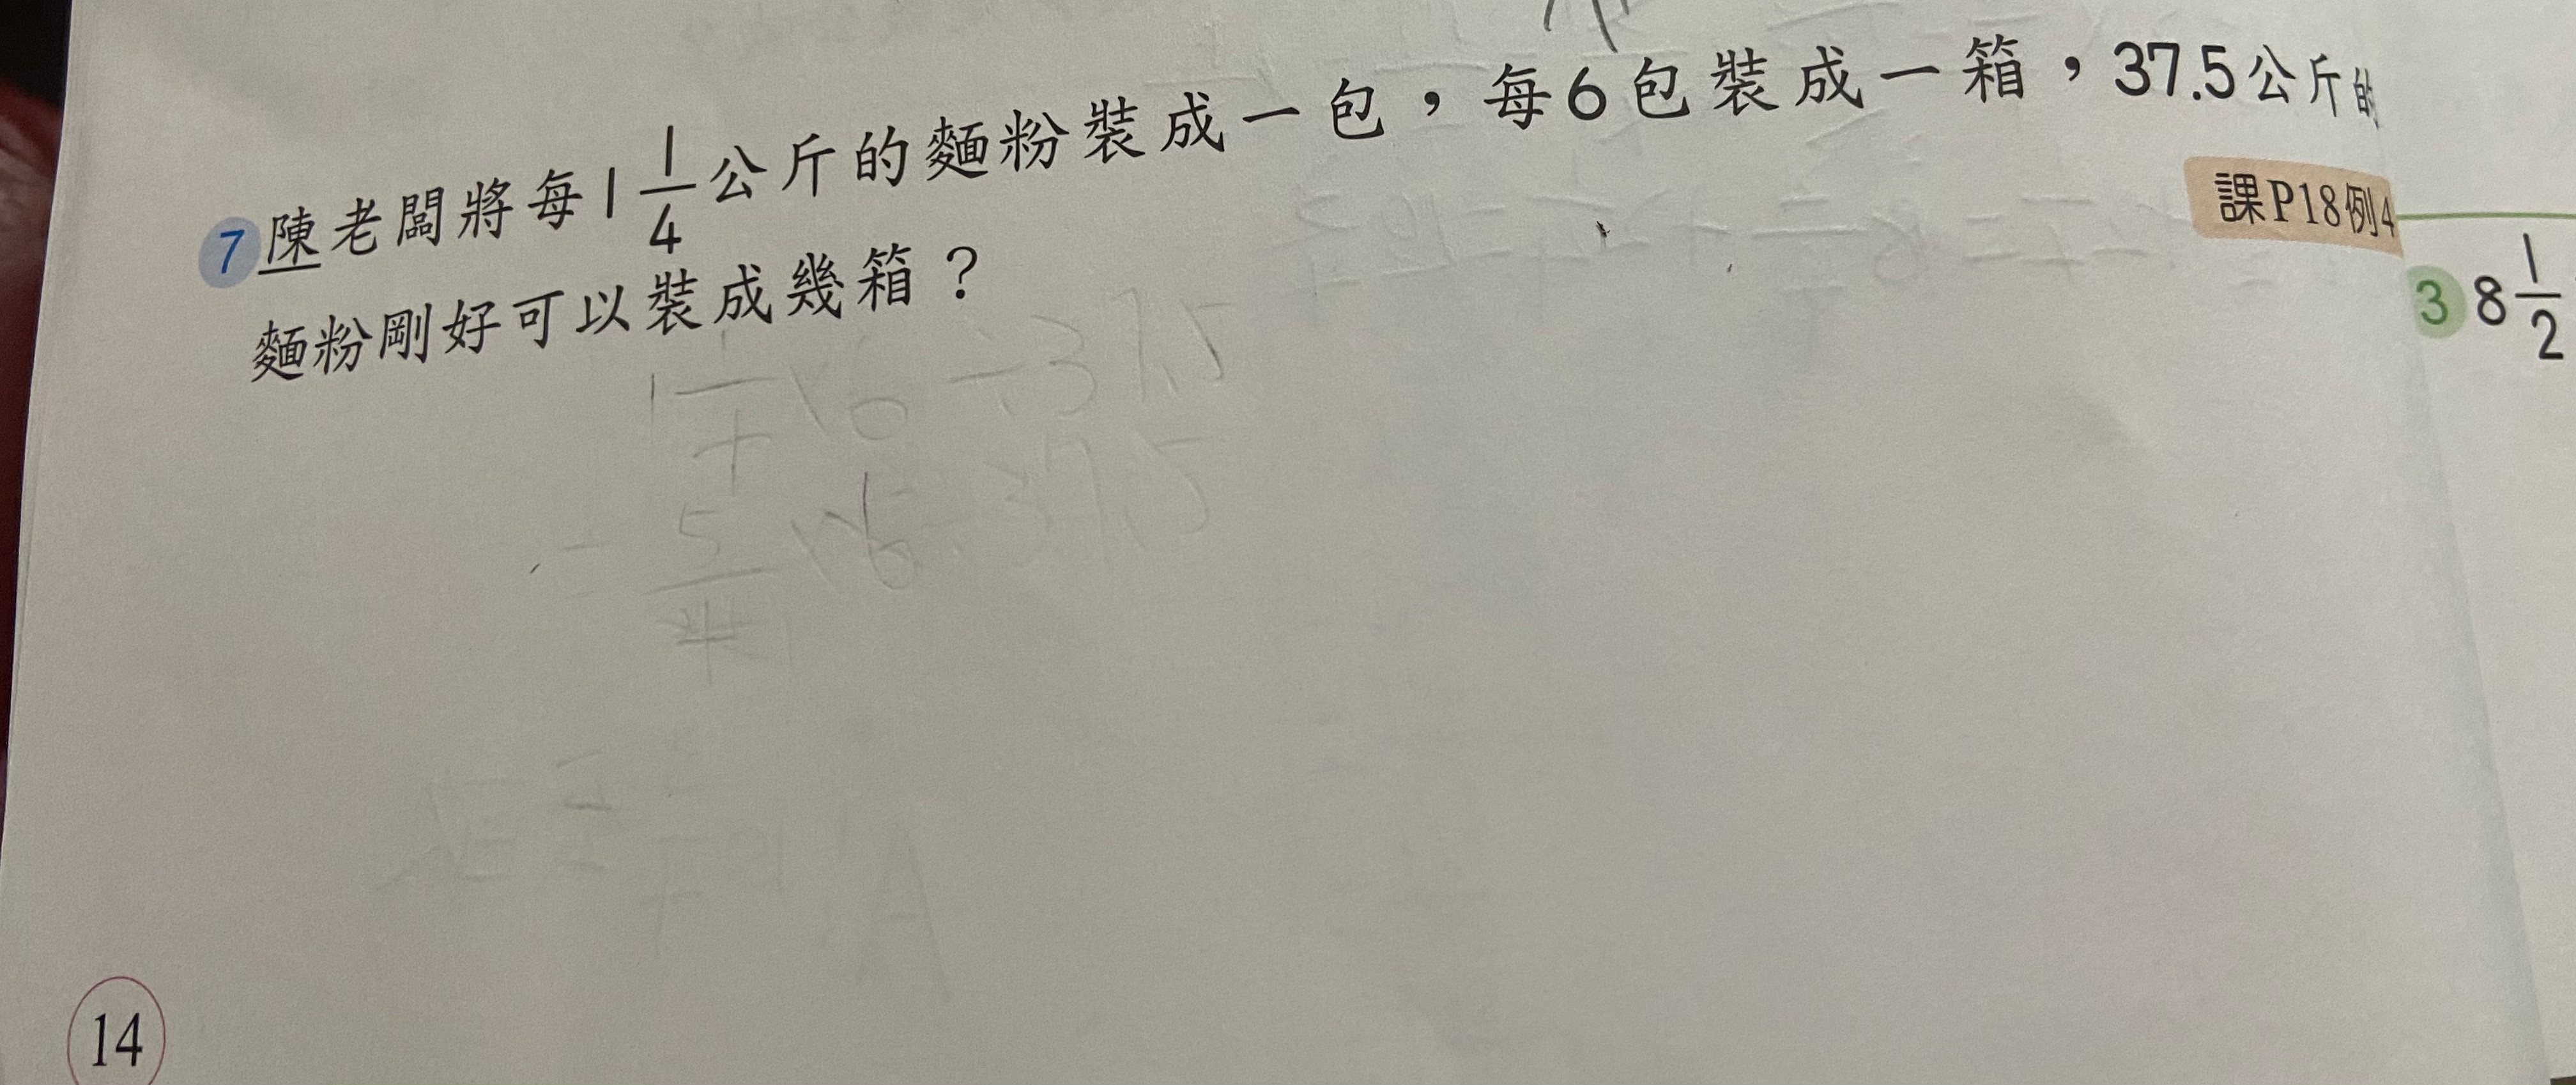 7 陳老闆將每1 1/4公斤的麵粉裝成一包,每6包裝成一箱,37.5公斤的
課P18例4
麵粉剛好可以裝成幾箱?
3 8 1/2
1 1/4 × 6 ÷ 37.5
= 5/4 × 6 ÷ 37.5
14